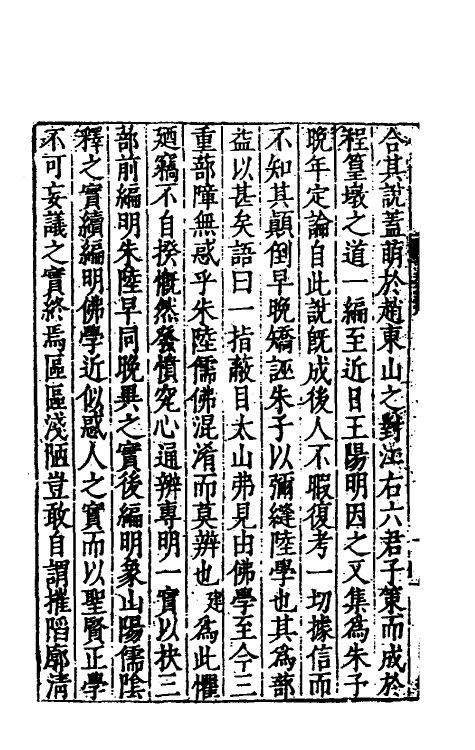 合其說蓋萌於趙東山之對江右六君子策而成於
程篁墩之道一編至近日王陽明因之又集為朱子
晚年定論自此說旣成後人不暇復考一切據信而
不知其顛倒早晚矯誣朱子以彌縫陸學也其為蔀
益以甚矣語曰一指蔽目太山弗見由佛學至今三
重蔀障無惑乎朱陸儒佛混淆而莫辨也建為此懼
廼竊不自揆慨然發憤究心通辨專明一實以抉三
蔀前編明朱陸早同晚異之實後編明象山陽儒陰
釋之實續編明佛學近似惑人之實而以聖賢正學
不可妄議之實終焉區區淺陋豈敢自謂摧陷廓清